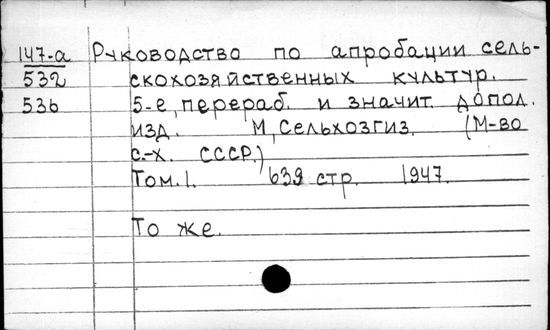 147-а Руководство по апробации сель-
532 скохозяйственных культур.
536 5-е, перераб. и значит. допол.
изд. М, Сельхозгиз. (М-во
с.-х. СССР.)
Том. 1. 639 стр. 1947.
То же.